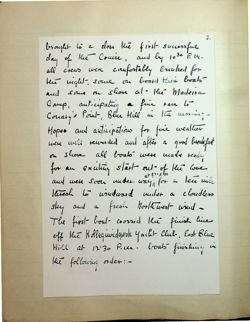 2.
brought to a close the first successful
day of the Cruise, and by 10 P.M.
all crews were comfortably bunked for
the night, some on board their boats
and some on shore at the Madeira
Camp, anticipating a fine run to
Conary's Point, Blue Hill in the morning.-
Hopes and anticipations for fine weather
were well rewarded and after a good breakfast
on shore all boats were made ready
for an exciting start out of the cove
and were soon under way, for a ten mile
thrash to windward under a cloudless
sky and a fresh Northwest wind -
The first boat crossed the finish line
off the Kollegewidgwok Yacht Club, East Blue
Hill at 12:30 P.M. boats finishing in
the following order:-